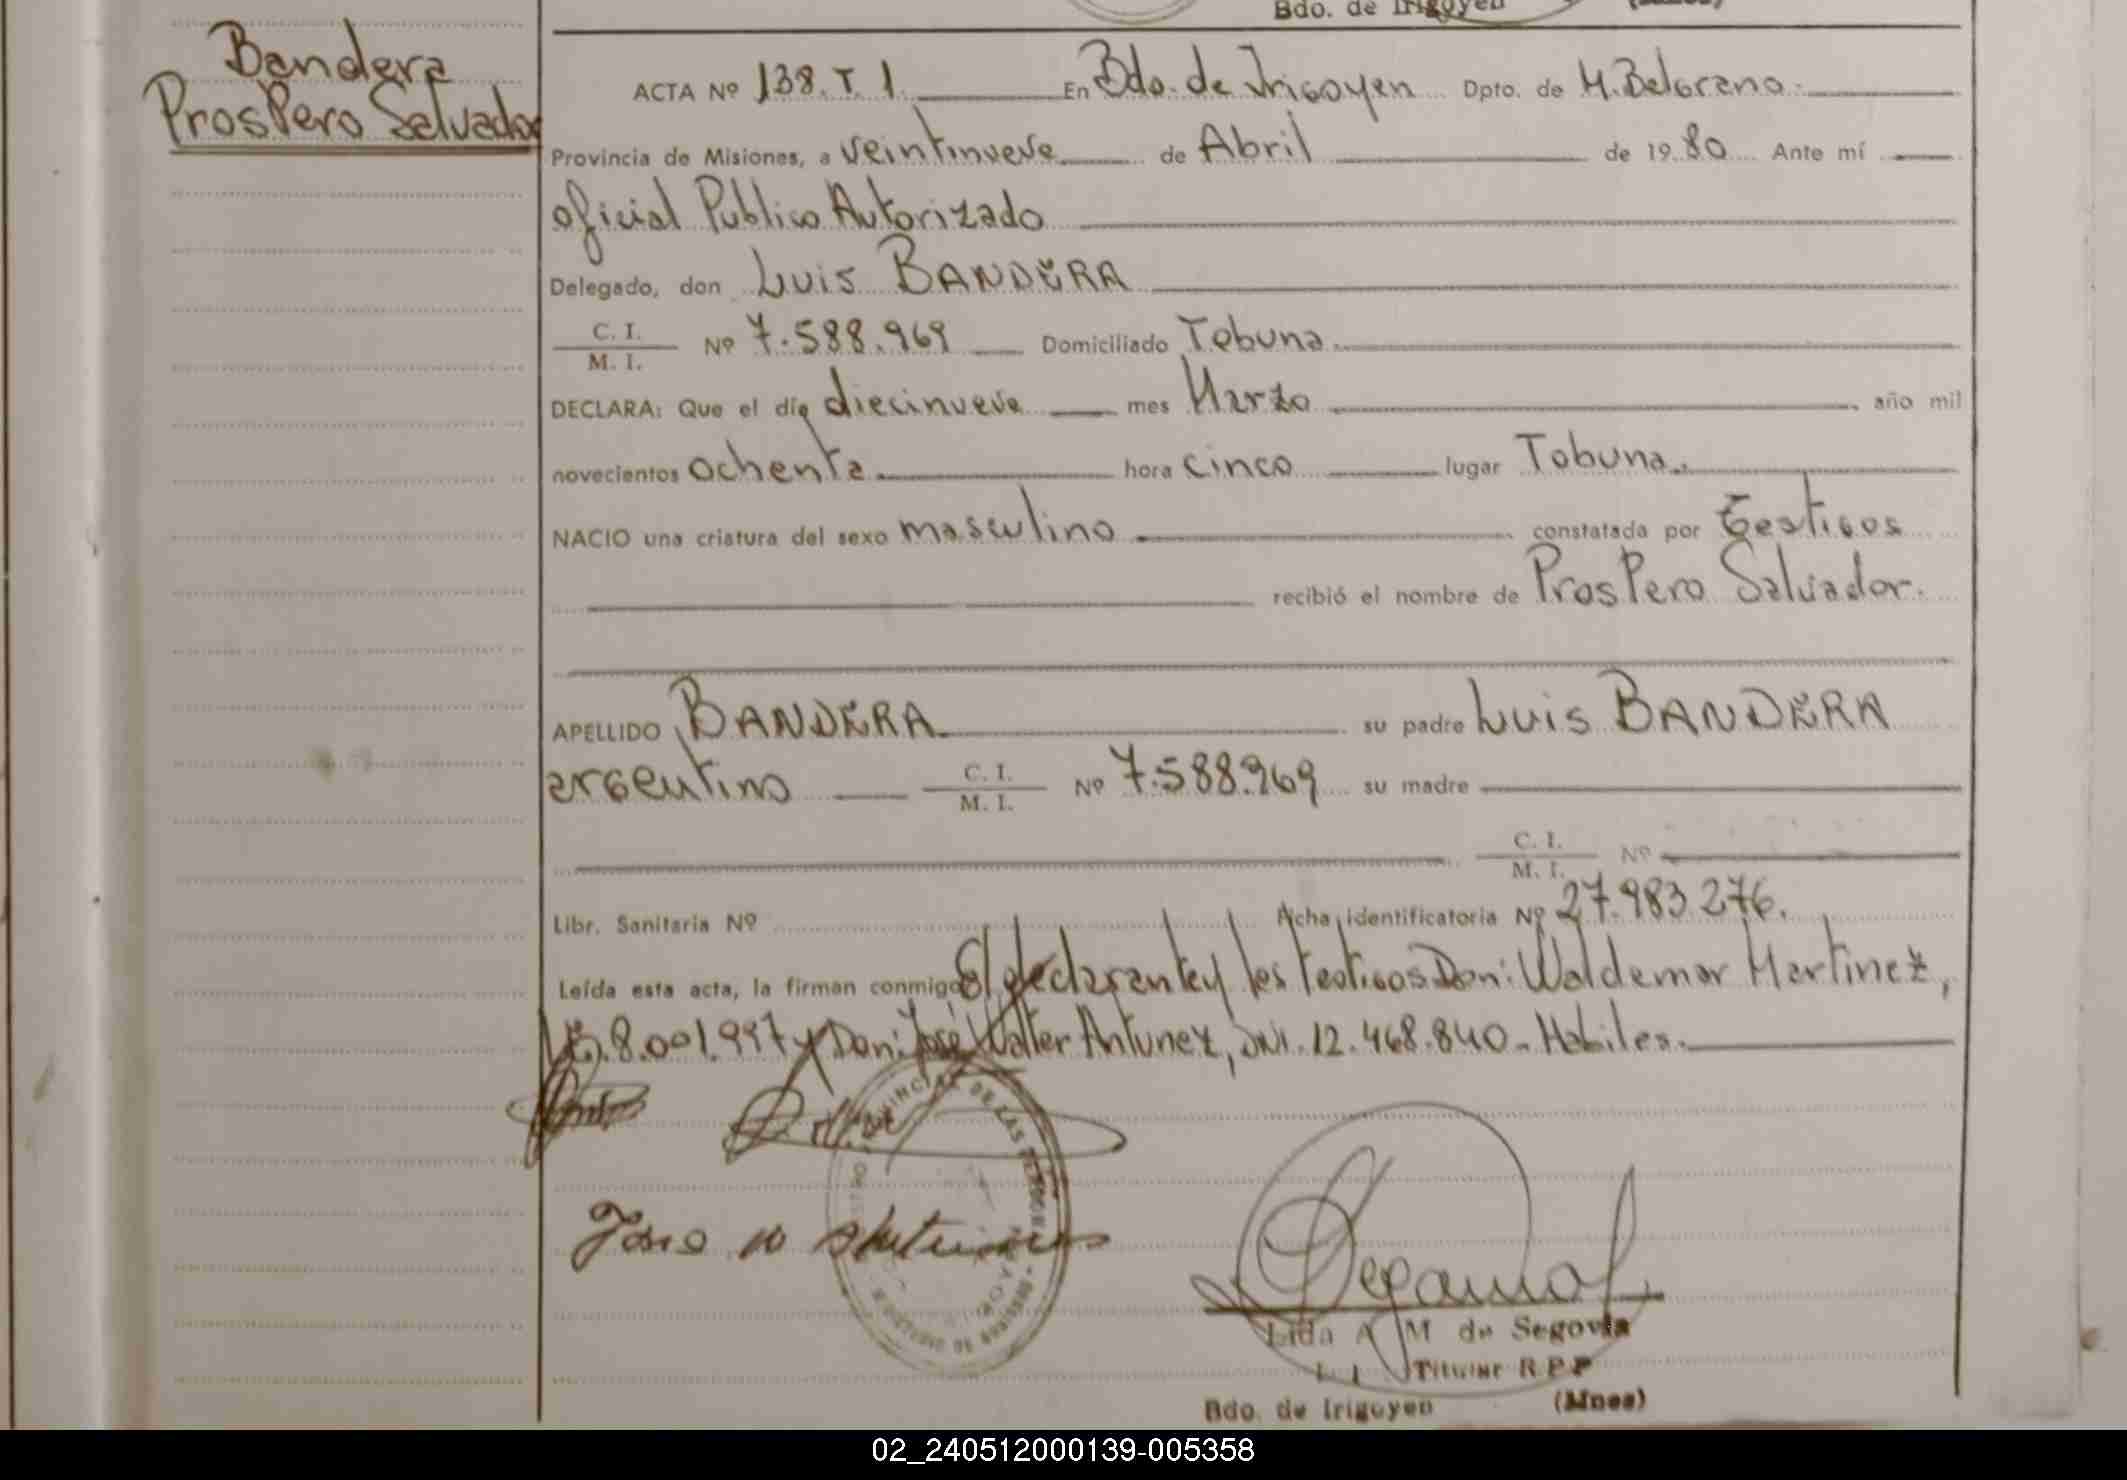 Bdo. de Irigoyen
Bandera
Prospero Salvador
ACTA Nº 138. T. 1. En Bdo. de Irigoyen Dpto. de M. Belgrano.
Provincia de Misiones, a veintinueve de Abril de 1980 Ante mí
oficial Publico Autorizado
Delegado, don Luis BANDERA
C. I.
M. I. Nº 7.588.969 Domiciliado Tobuna.
DECLARA: Que el día diecinueve mes Marzo año mil
novecientos ochenta hora cinco lugar Tobuna.
NACIO una criatura del sexo masculino constatada por Testigos
recibió el nombre de Prospero Salvador.
APELLIDO BANDERA su padre Luis BANDERA
argentino C. I.
M. I. Nº 7.588.969 su madre
C. I.
M. I. Nº
Libr. Sanitaria Nº Ficha identificatoria Nº 27.983.276.
Leída esta acta, la firman conmigo El declarante y los testigos Don: Waldemar Martinez,
8.001.997 y Don: José Walter Antunez, DNI. 12.468.840. Habiles.
Lida A M de Segovia
Titular R P P
Bdo. de Irigoyen (Mnes)
02_240512000139-005358